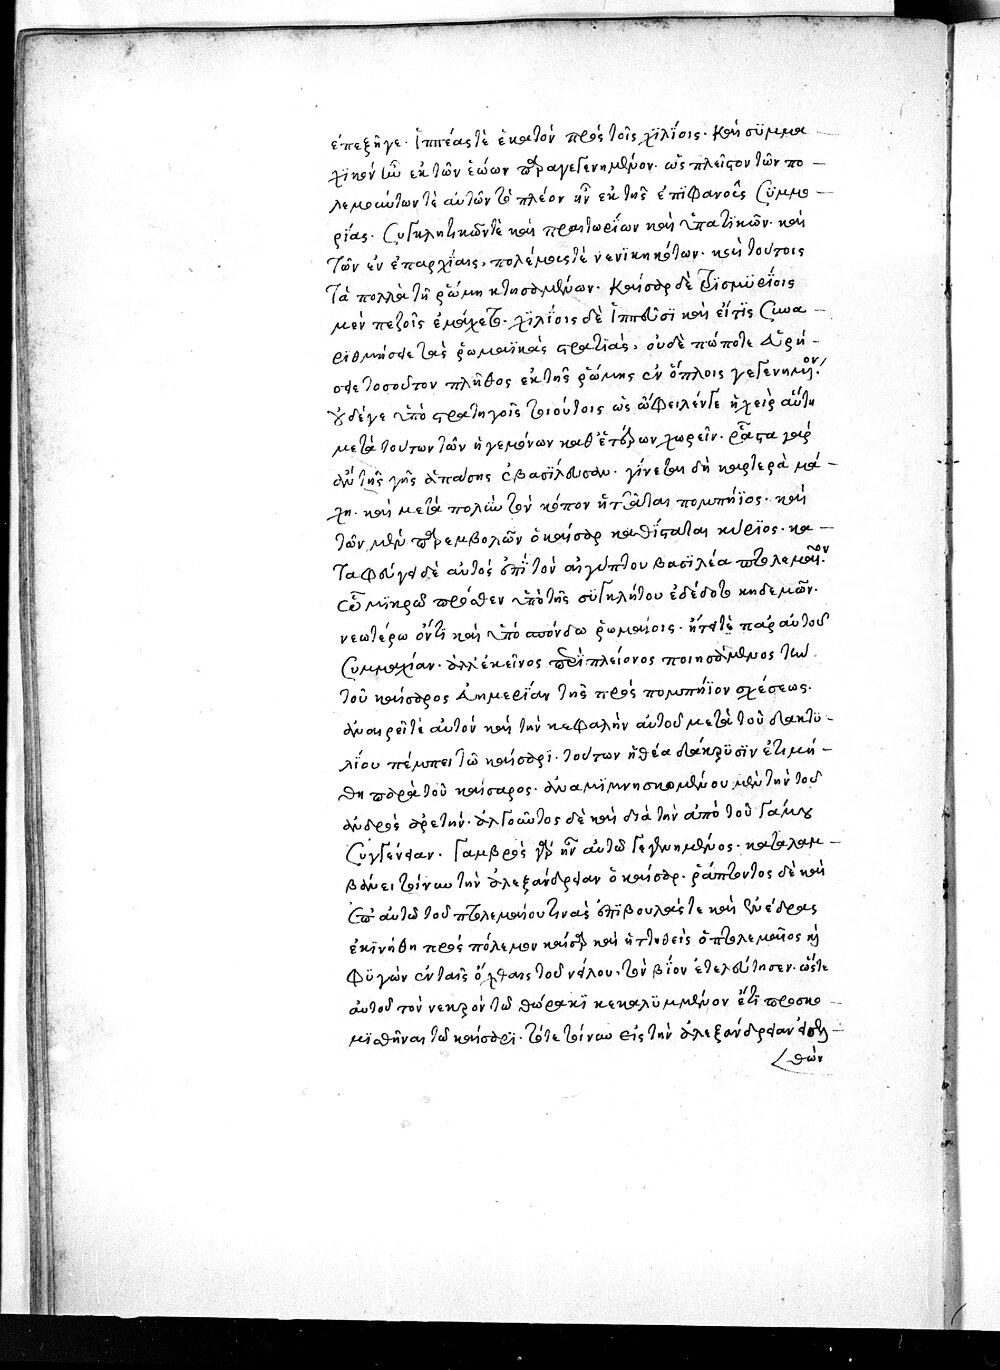 ἐπεξῆγε. ἱππέας τὲ ἑκατὸν πρὸς τοῖς χιλίοις. καὶ σύμμα
χικὸν ἦν ἐκ τῶν ἑώων παραγεγενημένον. ὡς πλεῖστον τῶν πο
λεμούντων τὲ αὐτῶν τὸ πλέον ἦν ἐκ τῆς ἐπιφανοῦς συμμο
ρίας. συγκλητικῶν τὲ καὶ πραιτωρίων καὶ ὑπατικῶν. καὶ
τῶν ἐν ἐπαρχίαις, πολέμους τὲ νενικηκότων. καὶ τούτοις
τὰ πολλὰ τῇ ῥώμῃ κτησαμένων. καίσαρ δὲ τρισμυρίοις
μὲν πεζοῖς ἐμάχετο. χιλίοις δὲ ἱππεῦσι καὶ εἴ τις συνα
ριθμήσειε τὰς ῥωμαϊκὰς στρατιάς, οὐδὲ πώποτε εὑρή
σειε τοσοῦτον πλῆθος ἐκ τῆς ῥώμης ἐν ὅπλοις γεγενημένον.
οὐδέ γε ὑπὸ στρατηγοῖς τοιούτοις ὡς ὤφειλέν γε ἡ χεὶρ αὕτη
μετὰ τούτων τῶν ἡγεμόνων καθ' ἑτέρων χωρεῖν. ῥᾷστα γὰρ
ἂν τῆς γῆς ἁπάσης ἐβασίλευσαν. γίνεται δὴ καρτερὰ μά
χη. καὶ μετὰ πολὺν τὸν κόπον ἡττᾶται πομπήϊος. καὶ
τῶν μὲν παρεμβολῶν ὁ καίσαρ καθίσταται κύριος. κα
ταφεύγει δὲ αὐτὸς ἐπὶ τὸν αἰγύπτου βασιλέα πτολεμαῖον.
ᾧ μικρῷ πρόσθεν ὑπὸ τῆς συγκλήτου ἐδέδοτο κηδεμών.
νεωτέρῳ ὄντι καὶ ὑποσπόνδῳ ῥωμαίοις. ᾔτει τὲ παρ' αὐτοῦ
συμμαχίαν. ἀλλ' ἐκεῖνος περὶ πλείονος ποιησάμενος τὴν
τοῦ καίσαρος εὐημερίαν τῆς πρὸς πομπήϊον σχέσεως.
ἀναιρεῖ τὲ αὐτὸν καὶ τὴν κεφαλὴν αὐτοῦ μετὰ τοῦ δακτυ
λίου πέμπει τῷ καίσαρι. τούτων ἡ θέα δάκρυσιν ἐτιμή
θη παρὰ τοῦ καίσαρος. ἀναμιμνησκομένου μὲν τὴν τοῦ
ἀνδρὸς ἀρετήν. ἀλγοῦντος δὲ καὶ διὰ τὴν ἀπὸ τοῦ γάμου
συγγένειαν. γαμβρὸς γὰρ ἦν αὐτῷ γεγενημένος. καταλαμ
βάνει τοίνυν τὴν ἀλεξάνδρειαν ὁ καίσαρ. ῥάπτοντος δὲ καὶ
ἐπ' αὐτῷ τοῦ πτολεμαίου τινὰς ἐπιβουλάς τε καὶ ἐνέδρας
ἐκινήθη πρὸς πόλεμον καίσαρ καὶ ἡττηθεὶς ὁ πτολεμαῖος καὶ
φυγὼν ἐν ταῖς ὄχθαις τοῦ νείλου, τὸν βίον ἐτελεύτησεν. ὥστε
αὐτοῦ τὸν νεκρὸν τῷ θώρακι κεκαλυμμένον ἔτι προσκο
μισθῆναι τῷ καίσαρι. τότε τοίνυν εἰς τὴν ἀλεξάνδρειαν εἰσελ
θών